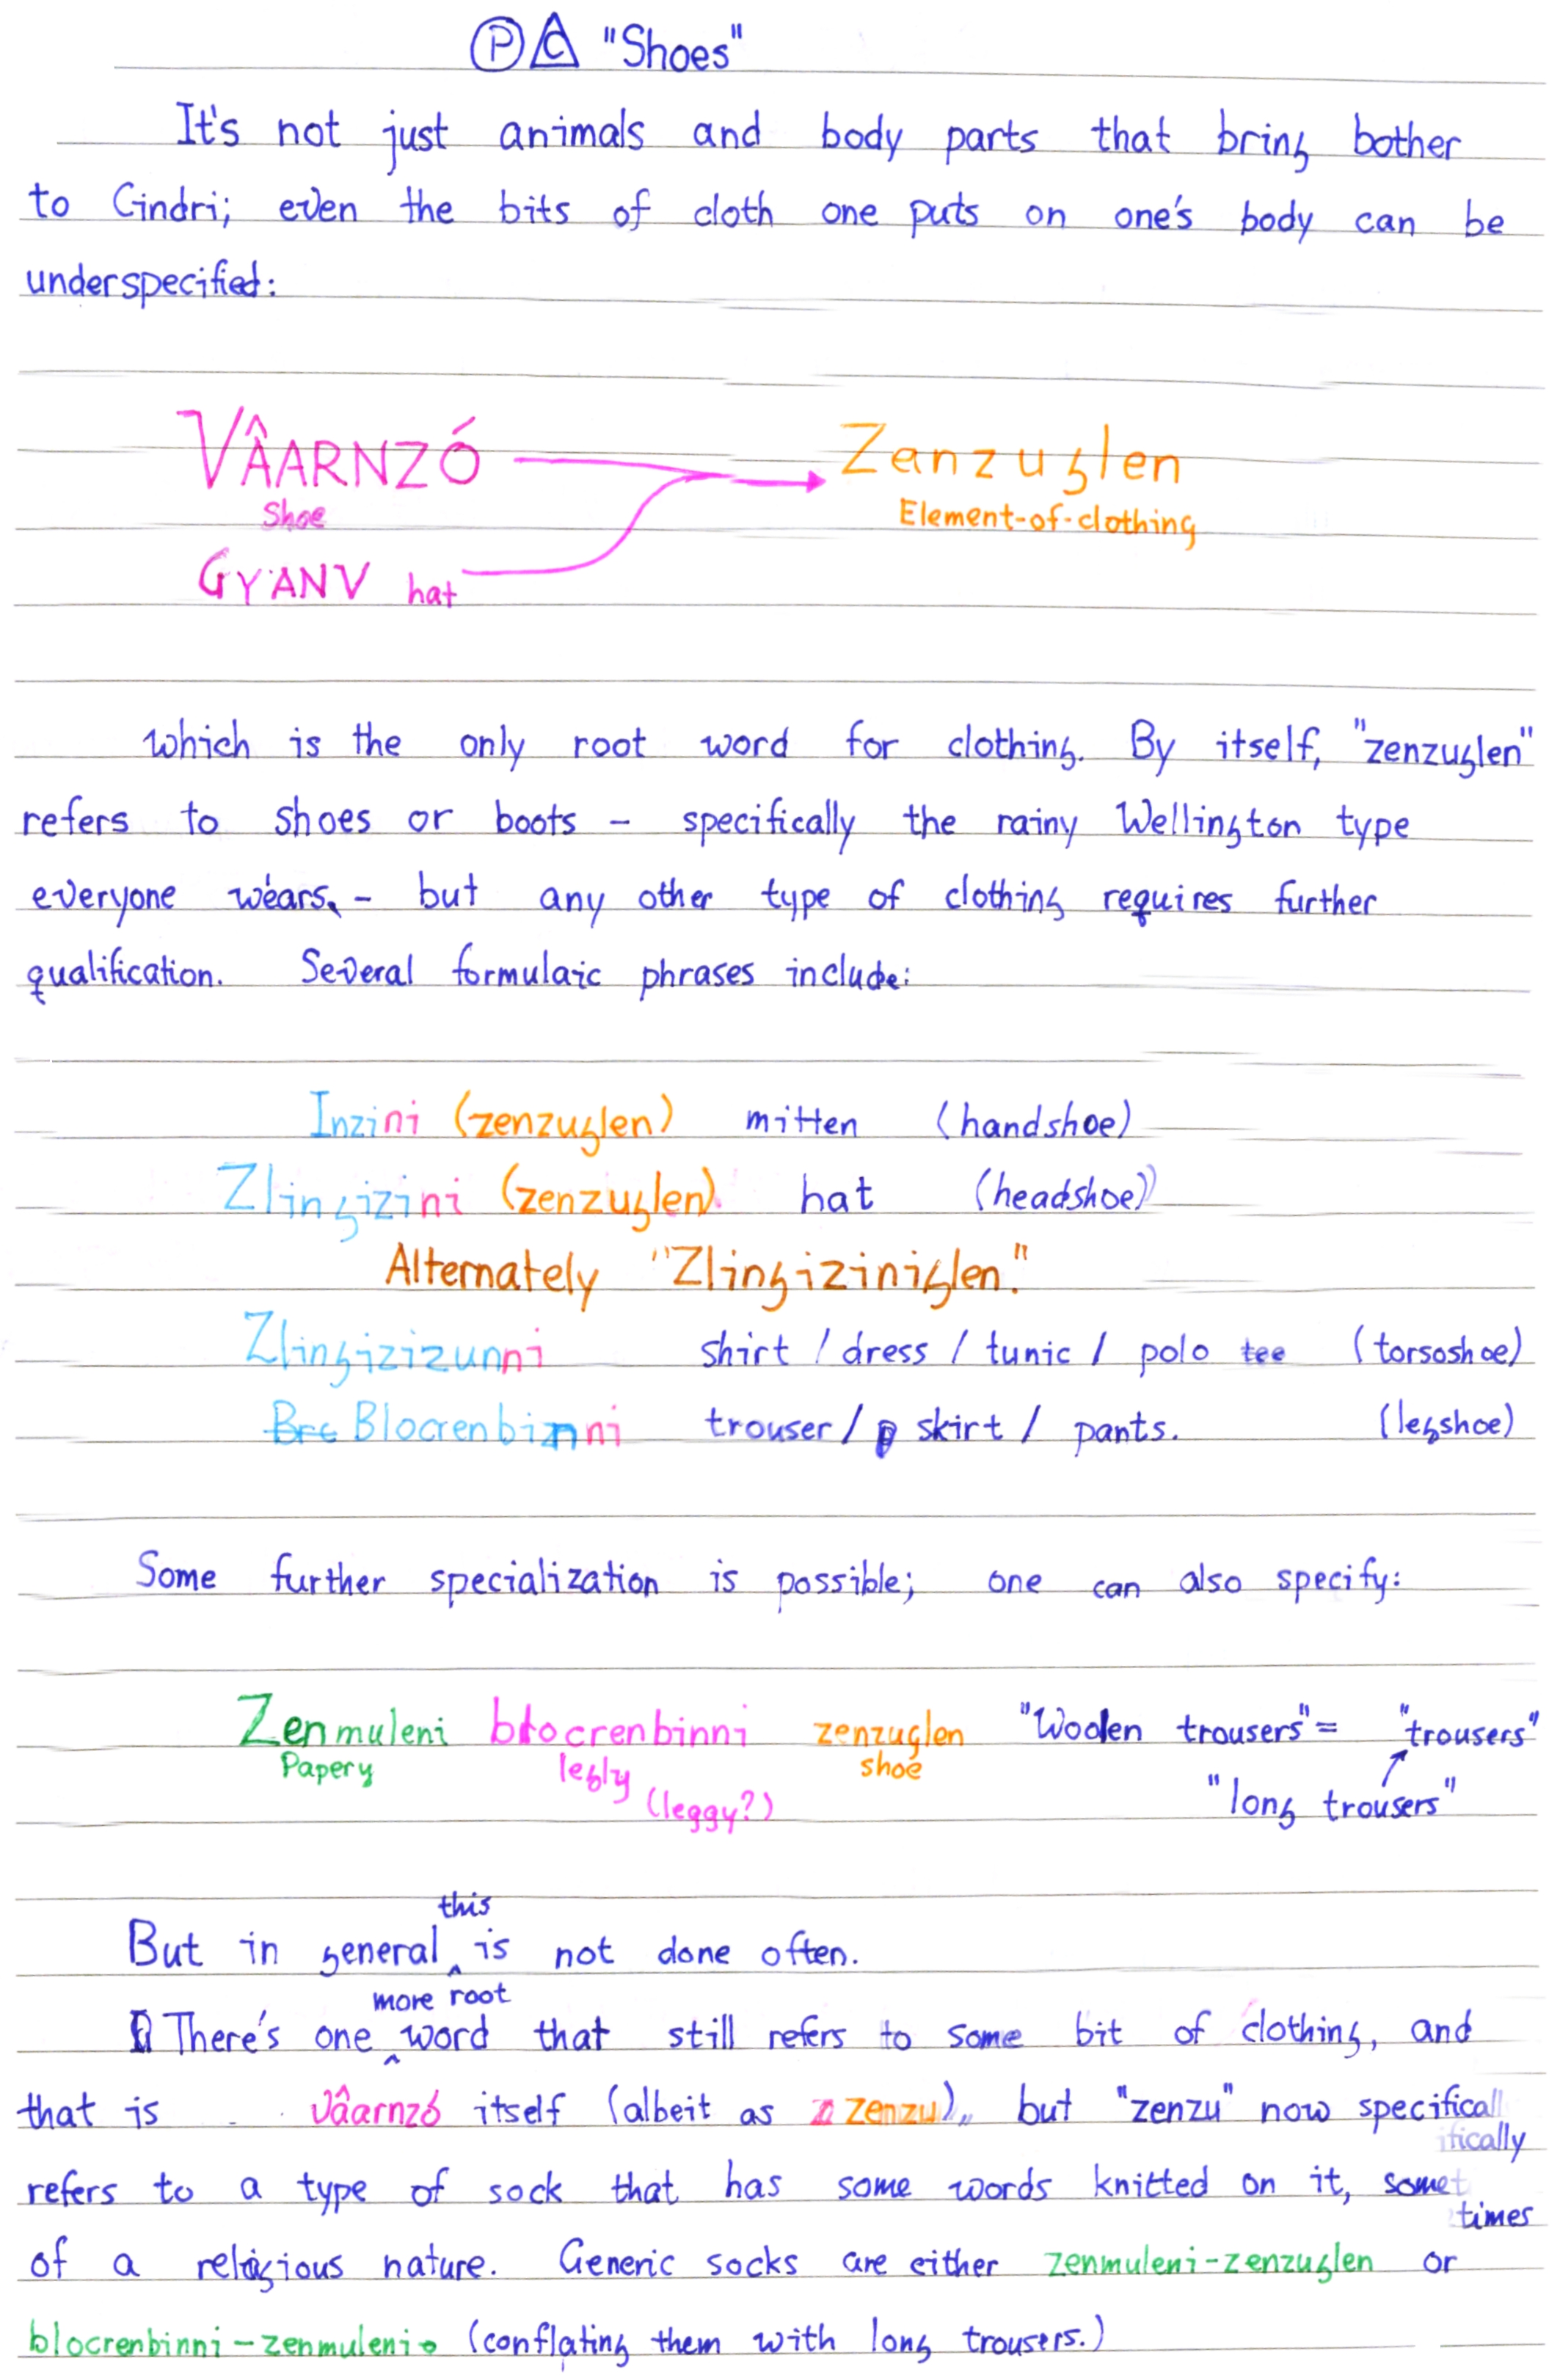 Ⓟ C "Shoes"
It's not just animals and body parts that bring bother
to Cindri; even the bits of cloth one puts on one's body can be
underspecified:
VÂARNZÓ Zenzuglen
Shoe Element-of-clothing
GYANV hat
which is the only root word for clothing. By itself, "zenzuglen"
refers to shoes or boots - specifically the rainy Wellington type
everyone wears. - but any other type of clothing requires further
qualification. Several formulaic phrases include:
Inzini (zenzuglen) mitten (handshoe)
Zlingizini (zenzuglen) hat (headshoe)
Alternately "Zlingiziniglen."
Zlingizizunni shirt / dress / tunic / polo tee (torsoshoe)
Bre Blocrenbinni trouser / skirt / pants. (legshoe)
Some further specialization is possible; one can also specify:
Zenmuleni blocrenbinni zenzuglen "Woolen trousers" = "trousers"
Papery legly shoe
(leggy?) "long trousers"
this
But in general is not done often.
more root
There's one word that still refers to some bit of clothing, and
that is vâarnzó itself (albeit as zenzu), but "zenzu" now specifically
refers to a type of sock that has some words knitted on it, sometimes
of a religious nature. Generic socks are either zenmuleni-zenzuglen or
blocrenbinni-zenmuleni. (conflating them with long trousers.)